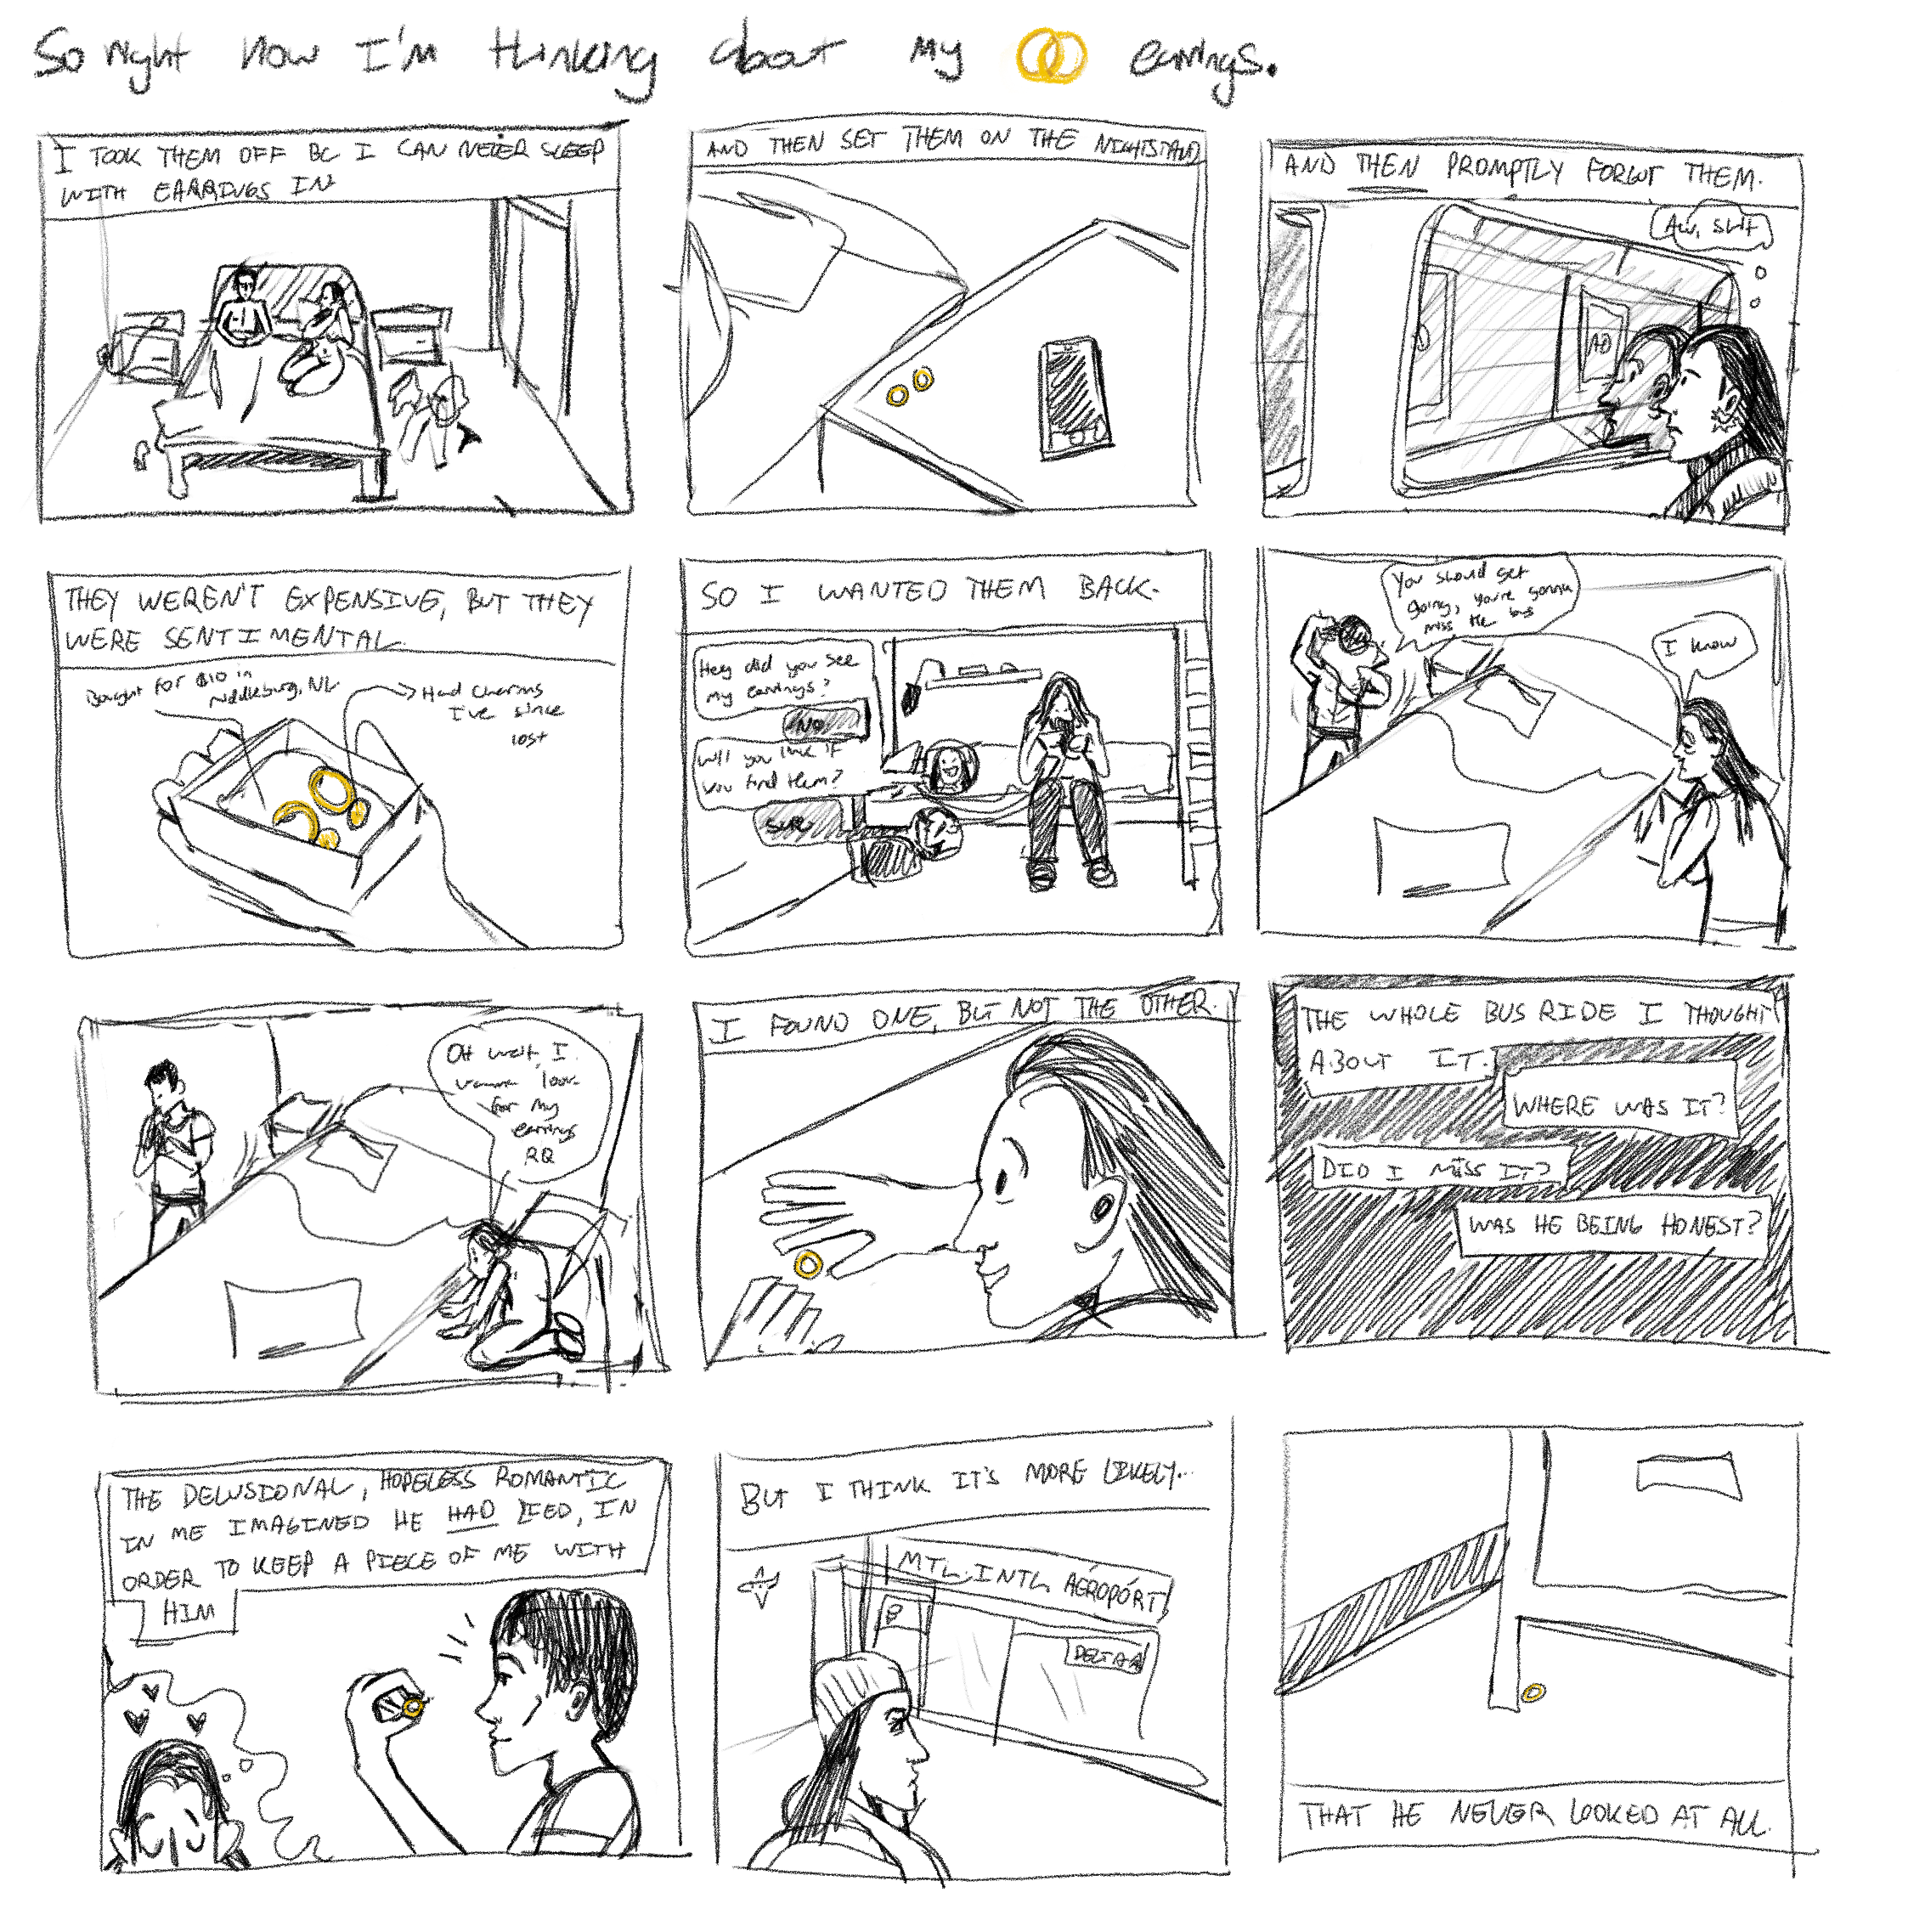 So right now I'm thinking about my earrings.
I TOOK THEM OFF BC I CAN NEVER SLEEP
WITH EARRINGS IN
AND THEN SET THEM ON THE NIGHTSTAND
AND THEN PROMPTLY FORGOT THEM.
AW, SHIT
AD
THEY WEREN'T EXPENSIVE, BUT THEY
WERE SENTIMENTAL
Bought for $10 in
Middleburg, NL
Had charms
I've since
lost
SO I WANTED THEM BACK.
Hey did you see
my earrings?
NO
will you look if
you find them?
SURE
You should get
going, you're gonna
miss the bus
I know
Oh wait, I
wanna look
for my
earrings
RQ
I FOUND ONE, BUT NOT THE OTHER.
THE WHOLE BUS RIDE I THOUGHT
ABOUT IT.
WHERE WAS IT?
DID I MISS IT?
WAS HE BEING HONEST?
THE DELUSIONAL, HOPELESS ROMANTIC
IN ME IMAGINED HE HAD LIED, IN
ORDER TO KEEP A PIECE OF ME WITH
HIM
BUT I THINK IT'S MORE LIKELY...
MTL INTL AÉROPÓRT
8
DELTA
THAT HE NEVER LOOKED AT ALL.